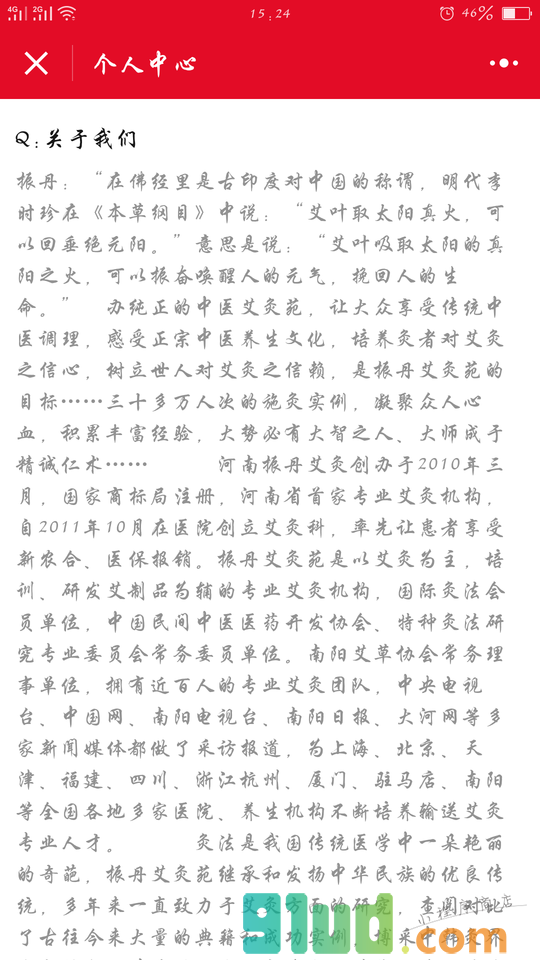 4G 2G 15:24 46%
个人中心
Q:关于我们
振丹：“在佛经里是古印度对中国的称谓，明代李
时珍在《本草纲目》中说：“艾叶取太阳真火，可
以回垂绝元阳。”意思是说：“艾叶吸取太阳的真
阳之火，可以振奋唤醒人的元气，挽回人的生
命。” 办纯正的中医艾灸苑，让大众享受传统中
医调理，感受正宗中医养生文化，培养灸者对艾灸
之信心，树立世人对艾灸之信赖，是振丹艾灸苑的
目标……三十多万人次的施灸实例，凝聚众人心
血，积累丰富经验，大势必有大智之人、大师成于
精诚仁术…… 河南振丹艾灸创办于2010年三
月，国家商标局注册，河南省首家专业艾灸机构，
自2011年10月在医院创立艾灸科，率先让患者享受
新农合、医保报销。振丹艾灸苑是以艾灸为主，培
训、研发艾制品为辅的专业艾灸机构，国际灸法会
员单位，中国民间中医医药开发协会、特种灸法研
究专业委员会常务委员单位。南阳艾草协会常务理
事单位，拥有近百人的专业艾灸团队，中央电视
台、中国网、南阳电视台、南阳日报、大河网等多
家新闻媒体都做了采访报道，为上海、北京、天
津、福建、四川、浙江杭州、厦门、驻马店、南阳
等全国各地多家医院、养生机构不断培养输送艾灸
专业人才。 灸法是我国传统医学中一朵艳丽
的奇葩，振丹艾灸苑继承和发扬中华民族的优良传
统，多年来一直致力于艾灸方面的研究，查阅对比
了古往今来大量的典籍和成功实例，博采中韩灸界
91ud.com